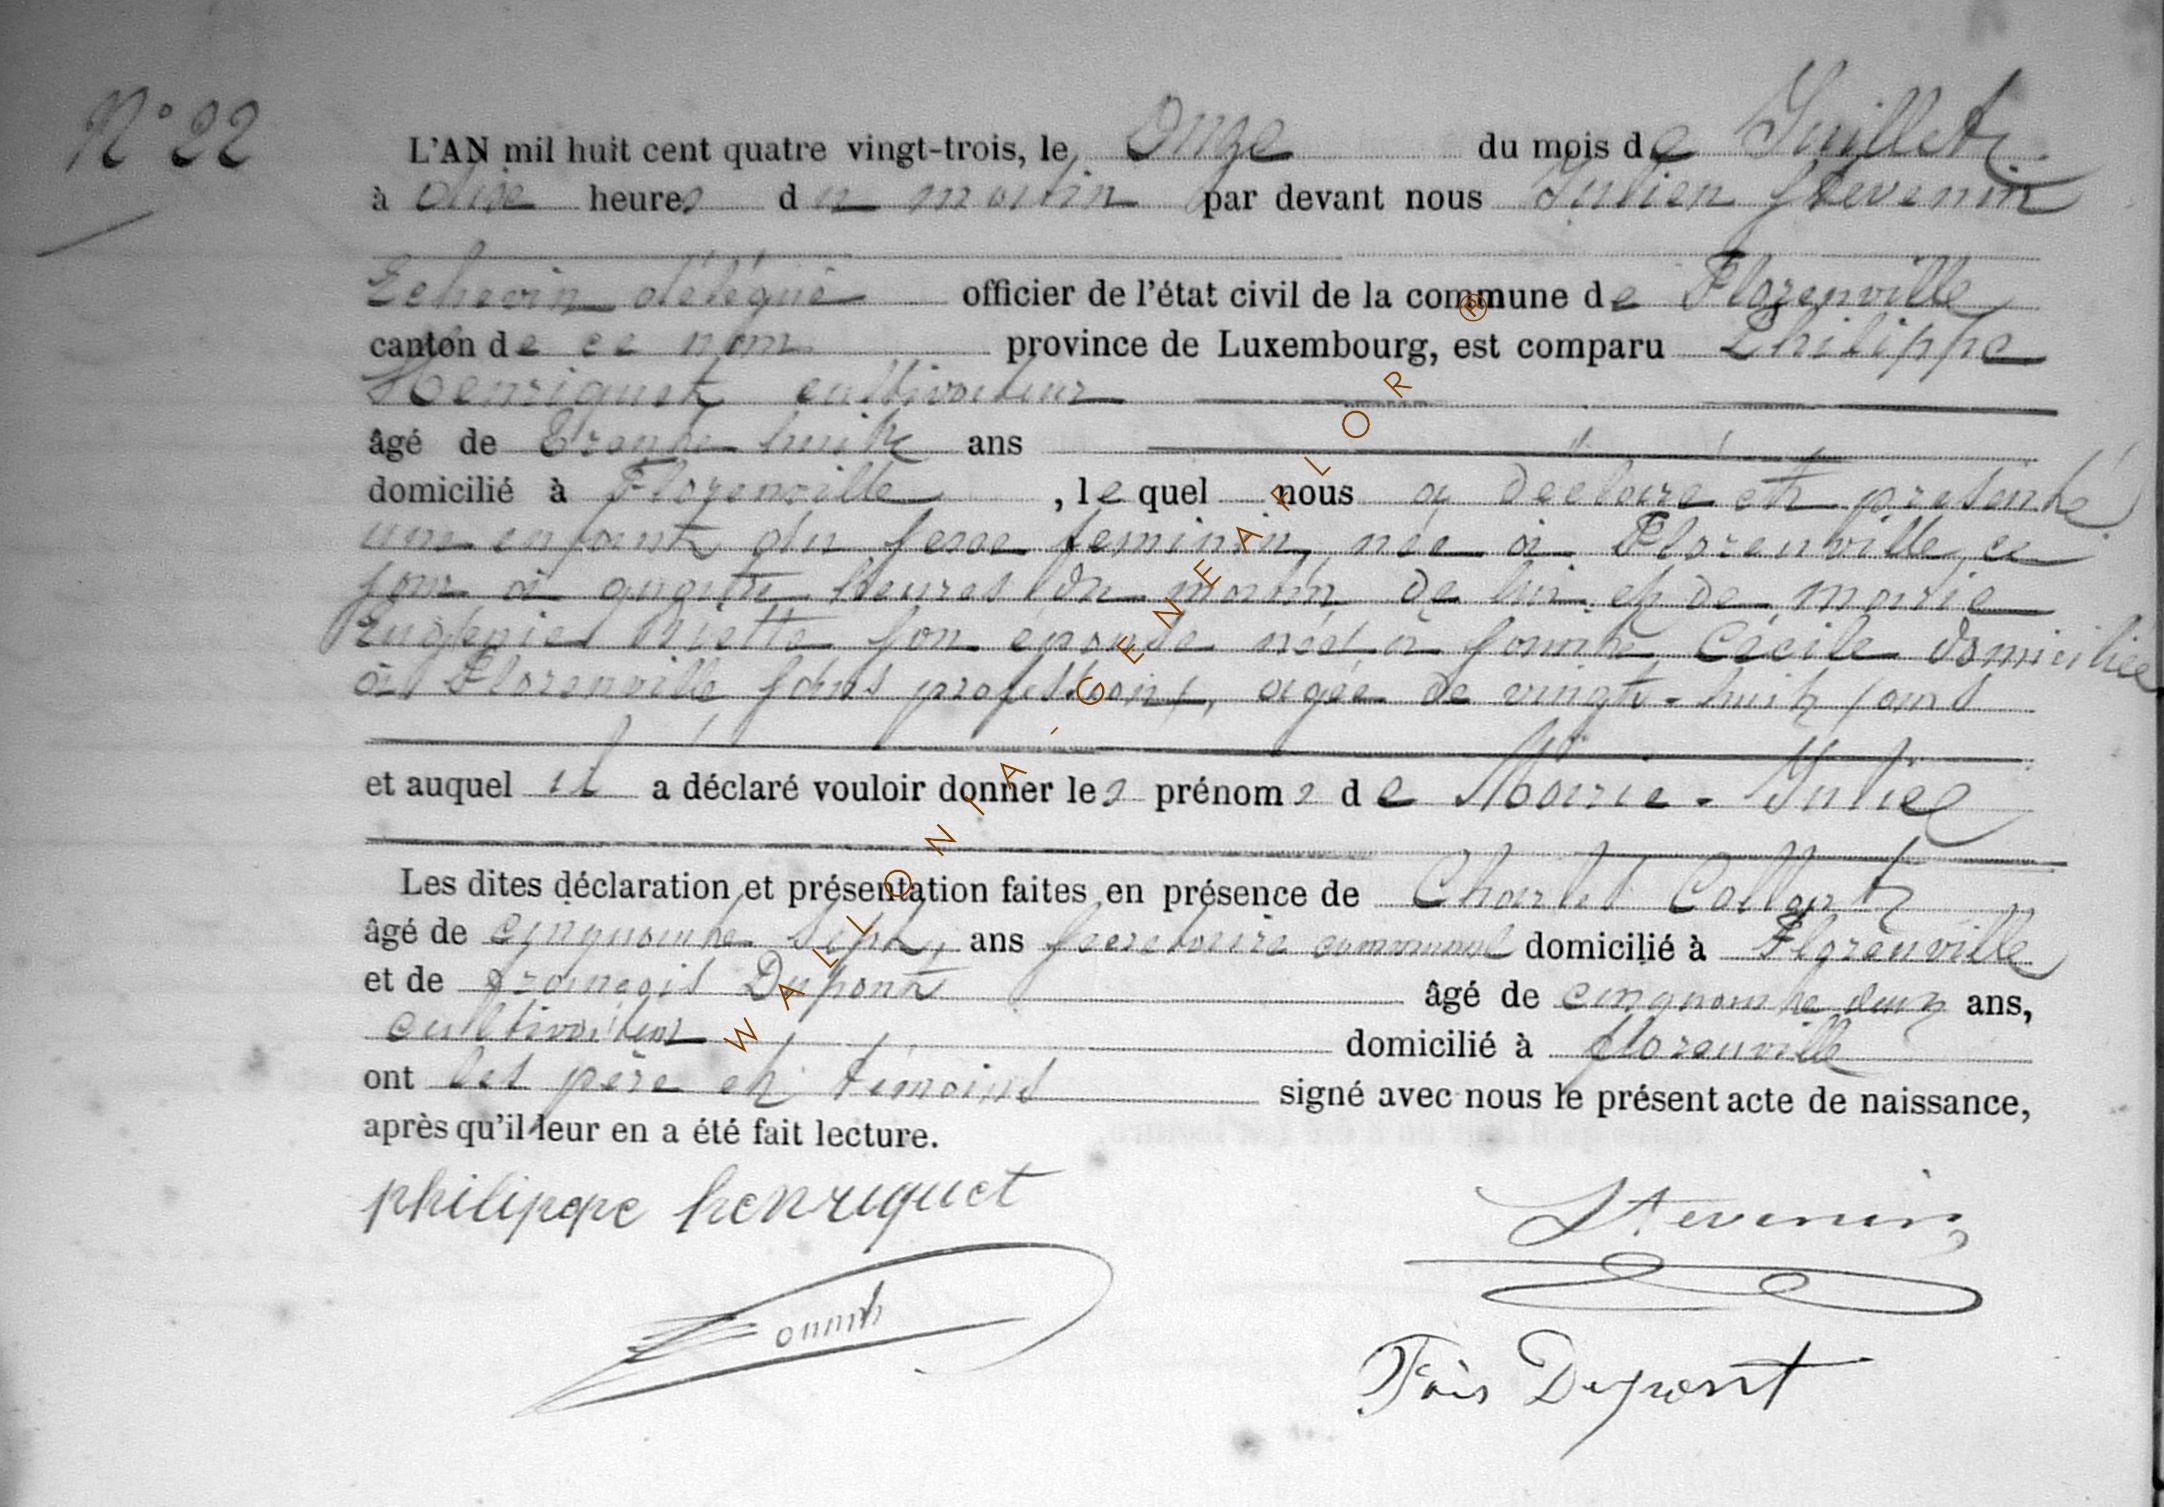 N° 22
L'AN mil huit cent quatre vingt-trois, le Onze du mois de Juillet
à dix heures du matin par devant nous Julien Stevenin
Echevin délégué officier de l'état civil de la commune de Florenville
canton de ce nom province de Luxembourg, est comparu Philippe
Henriquet cultivateur
âgé de trente huit ans
domicilié à Florenville, lequel nous a déclaré et présenté
une enfant du sexe feminin, née à Florenville ce
jour à quatre heures du matin de lui et de Marie
Eugénie son épouse née à Sainte Cécile domiciliée
à Florenville sans profession, agée de vingt-huit ans
et auquel il a déclaré vouloir donner les prénoms de Marie-Julie
Les dites déclaration et présentation faites en présence de Charles Collart
âgé de cinquante sept, ans secretaire communal domicilié à Florenville
et de françois Dupont âgé de cinquante deux ans,
cultivateur domicilié à florenville
ont les père et témoins signé avec nous le présent acte de naissance,
après qu'il leur en a été fait lecture.
philippe henriquet
Stevenin
Fçois Dupont
WALLONIA-GENEAFLOR®